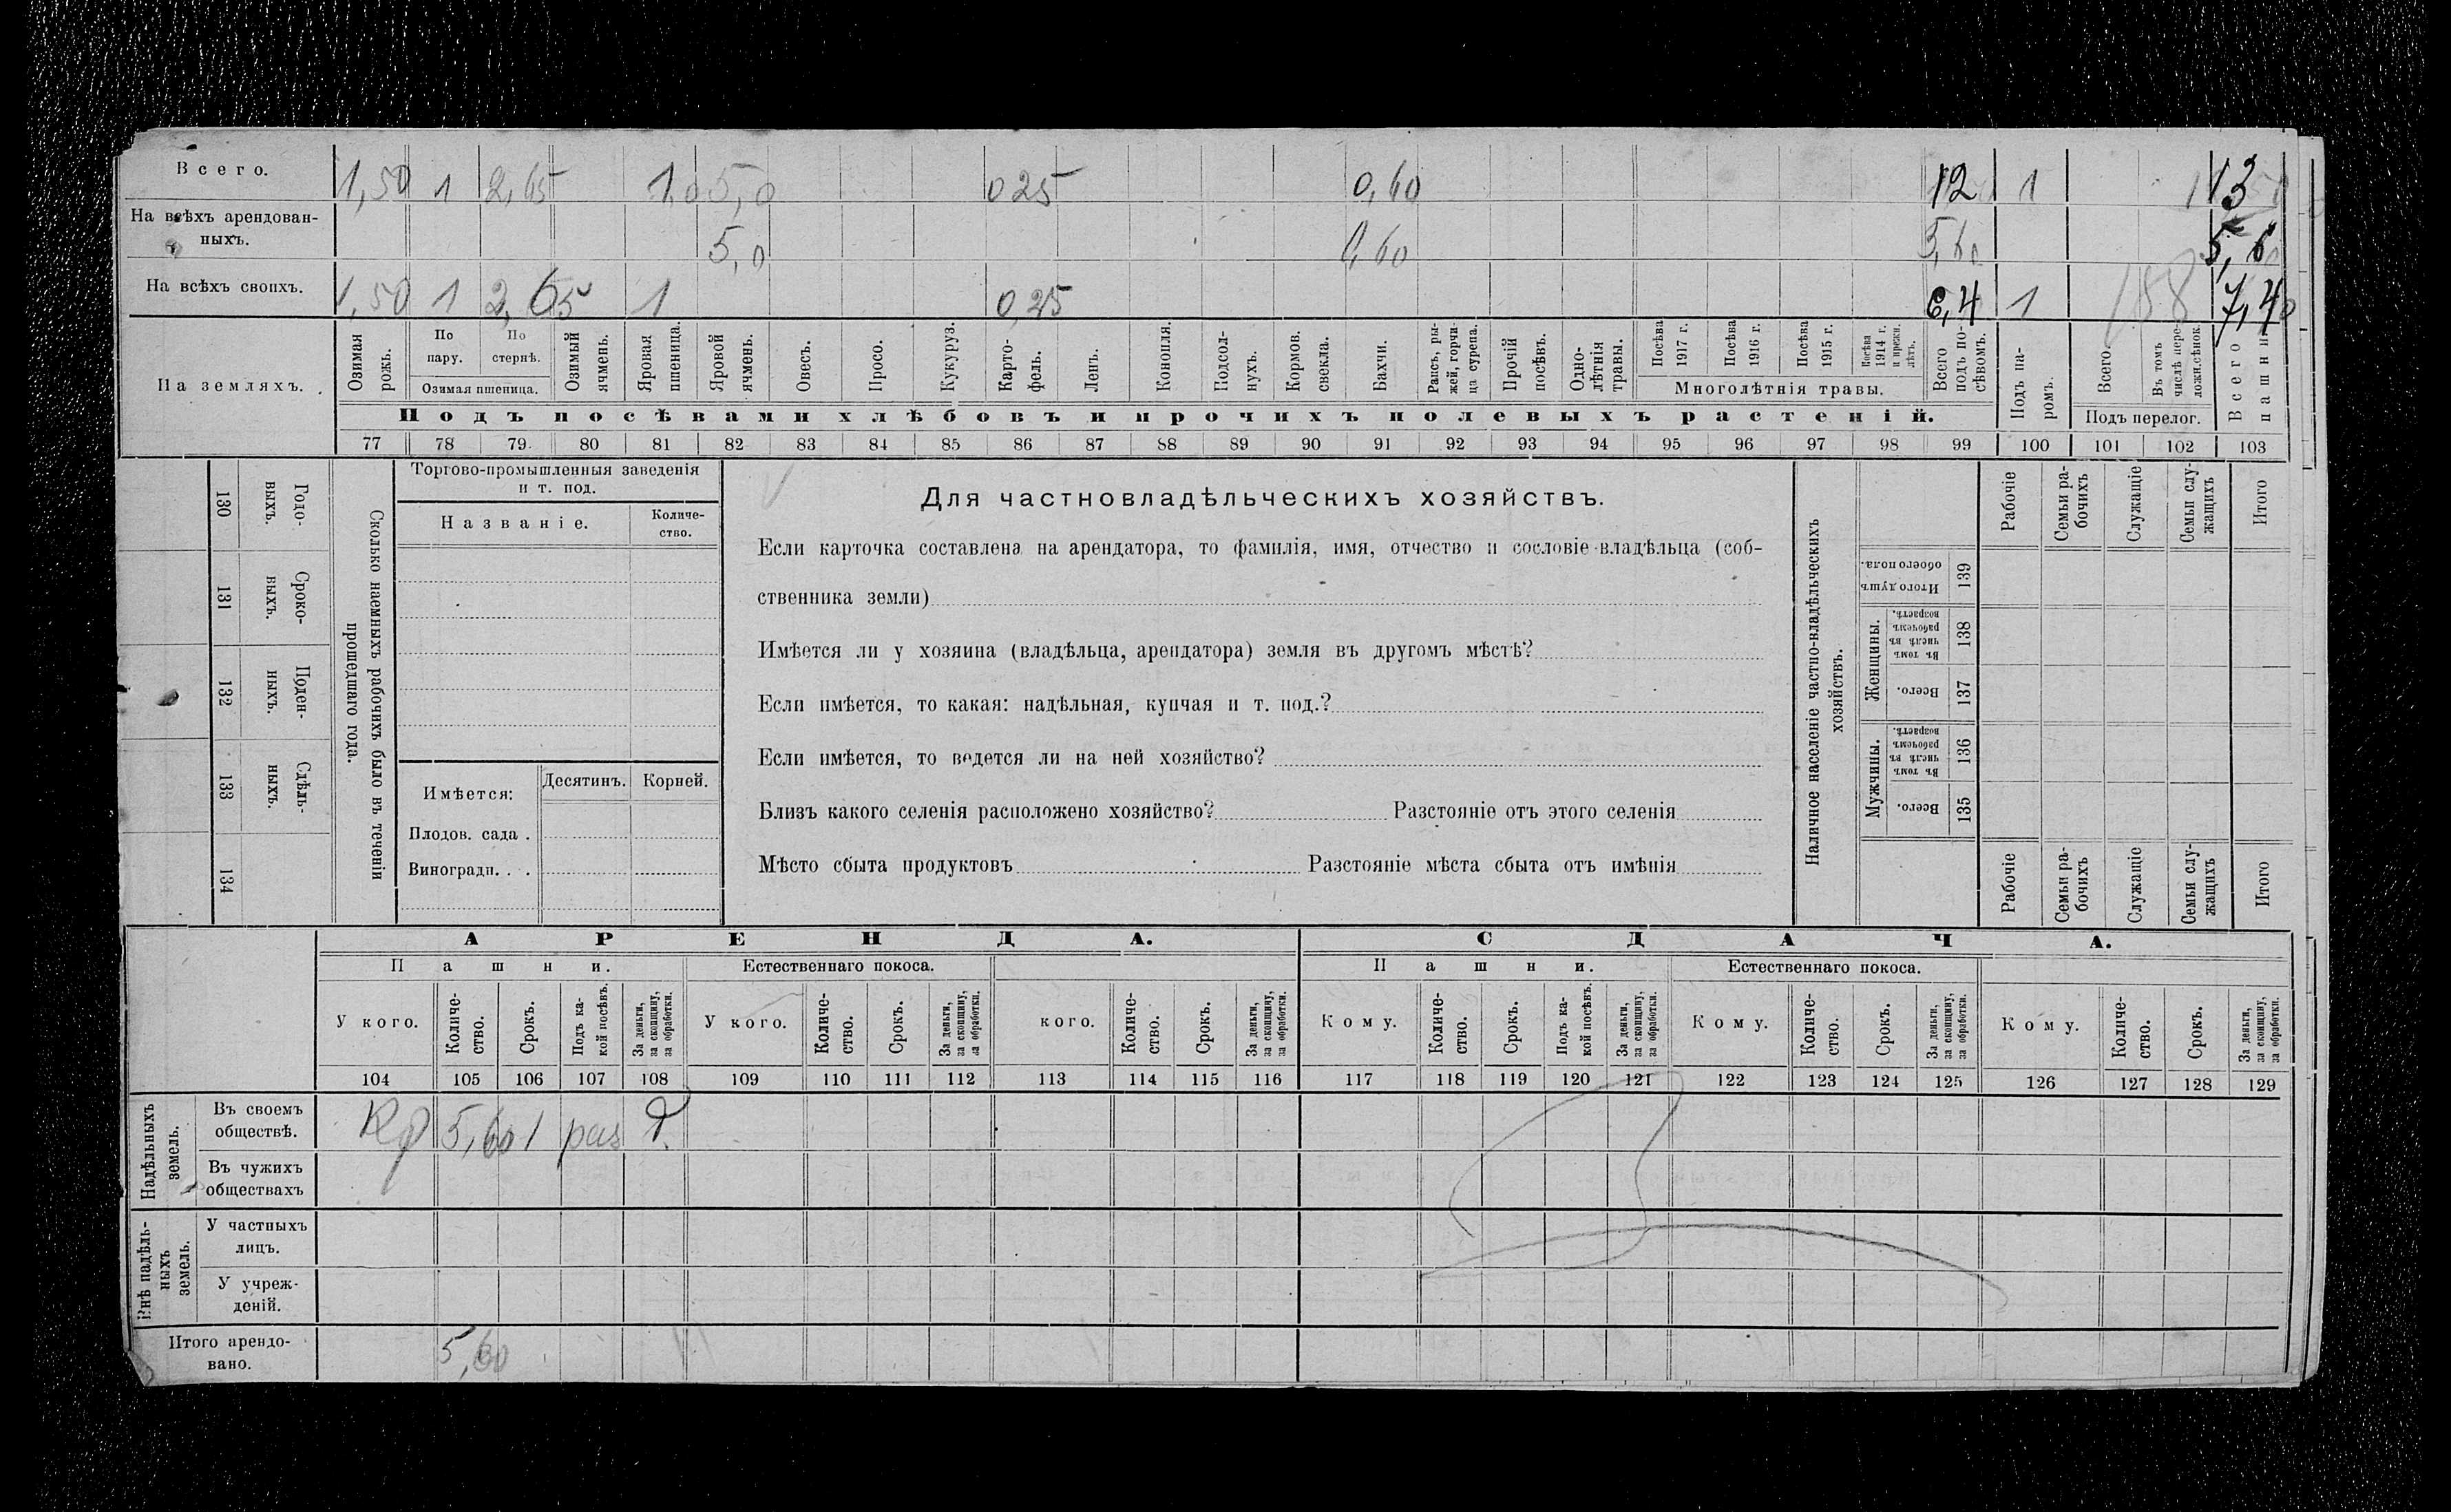 Всего. 1,50 1 2,65 1,0 5,0 0 25 0,60 12 1 13
На всѣхъ арендованныхъ. 5,0 0,60 5,60 5,6
На всѣхъ своихъ. 1,50 1 2,65 1 0,25 6,4 1 188 7,40
На земляхъ.
Озимая рожь.
По пару.
По стернѣ.
Озимая пшеница.
Озимый ячмень.
Яровая пшеница.
Яровой ячмень.
Овесъ.
Просо.
Кукуруз.
Картофель.
Ленъ.
Конопля.
Подсолнухъ.
Кормов. свекла.
Бахчи.
Рапсъ, рыжей, горчица сурепа.
Прочій посѣвъ.
Однолѣтнія травы.
Посѣва 1917 г.
Посѣва 1916 г.
Посѣва 1915 г.
Посѣва 1914 г. и прежн. лѣтъ.
Многолѣтнія травы.
Всего подъ посѣвомъ.
Подъ паромъ.
Всего.
Въ томъ числѣ переложн.сѣнок.
Подъ перелог.
Всего пашни
Подъ посѣвами хлѣбовъ и прочихъ полевыхъ растеній.
77 78 79. 80 81 82 83 84 85 86 87 88 89 90 91 92 93 94 95 96 97 98 99 100 101 102 103
130 Годовыхъ.
131 Сроковыхъ.
132 Поденныхъ.
133 Сдѣльныхъ.
134
Сколько наемныхъ рабочихъ было въ теченіи
прошедшаго года.
Торгово-промышленныя заведенія
и т. под.
Названіе.
Количество.
Имѣется:
Десятинъ.
Корней.
Плодов. сада .
Виноградн. . .
Для частновладѣльческихъ хозяйствъ.
Если карточка составлена на арендатора, то фамилія, имя, отчество и сословіе владѣльца (соб-
ственника земли)
Имѣется ли у хозяина (владѣльца, арендатора) земля въ другомъ мѣстѣ?
Если имѣется, то какая: надѣльная, купчая и т. под.?
Если имѣется, то ведется ли на ней хозяйство?
Близъ какого селенія расположено хозяйство? Разстояніе отъ этого селенія
Мѣсто сбыта продуктовъ Разстояніе мѣста сбыта отъ имѣнія
Наличное населеніе частно-владѣльческихъ
хозяйствъ.
Рабочіе
Семьи рабочихъ
Служащіе
Семьи служащихъ
Итого
Итого душъ обоего пола. 139
Женщины.
Въ томъ числѣ въ рабочемъ возрастѣ. 138
Всего. 137
Мужчины.
Въ томъ числѣ въ рабочемъ возрастѣ. 136
Всего. 135
Рабочіе
Семьи рабочихъ
Служащіе
Семьи служащихъ
Итого
АРЕНДА. СДАЧА.
Пашни. Естественнаго покоса. Пашни. Естественнаго покоса.
У кого. Количество. Срокъ. Подъ какой посѣвъ. За деньги, за скопщину, за обработки.
У кого. Количество. Срокъ. За деньги, за скопщину, за обработки.
кого. Количество. Срокъ. За деньги, за скопщину, за обработки.
Кому. Количество. Срокъ. Подъ какой посѣвъ. За деньги, за скопщину, за обработки.
Кому. Количество. Срокъ. За деньги, за скопщину, за обработки.
Кому. Количество. Срокъ. За деньги, за скопщину, за обработки.
104 105 106 107 108 109 110 111 112 113 114 115 116 117 118 119 120 121 122 123 124 125 126 127 128 129
Надѣльныхъ земель.
Въ своемъ обществѣ. Кр 5,60 1 раз д.
Въ чужихъ обществахъ
Внѣ надѣльныхъ земель.
У частныхъ лицъ.
У учрежденій.
Итого арендовано. 5,60